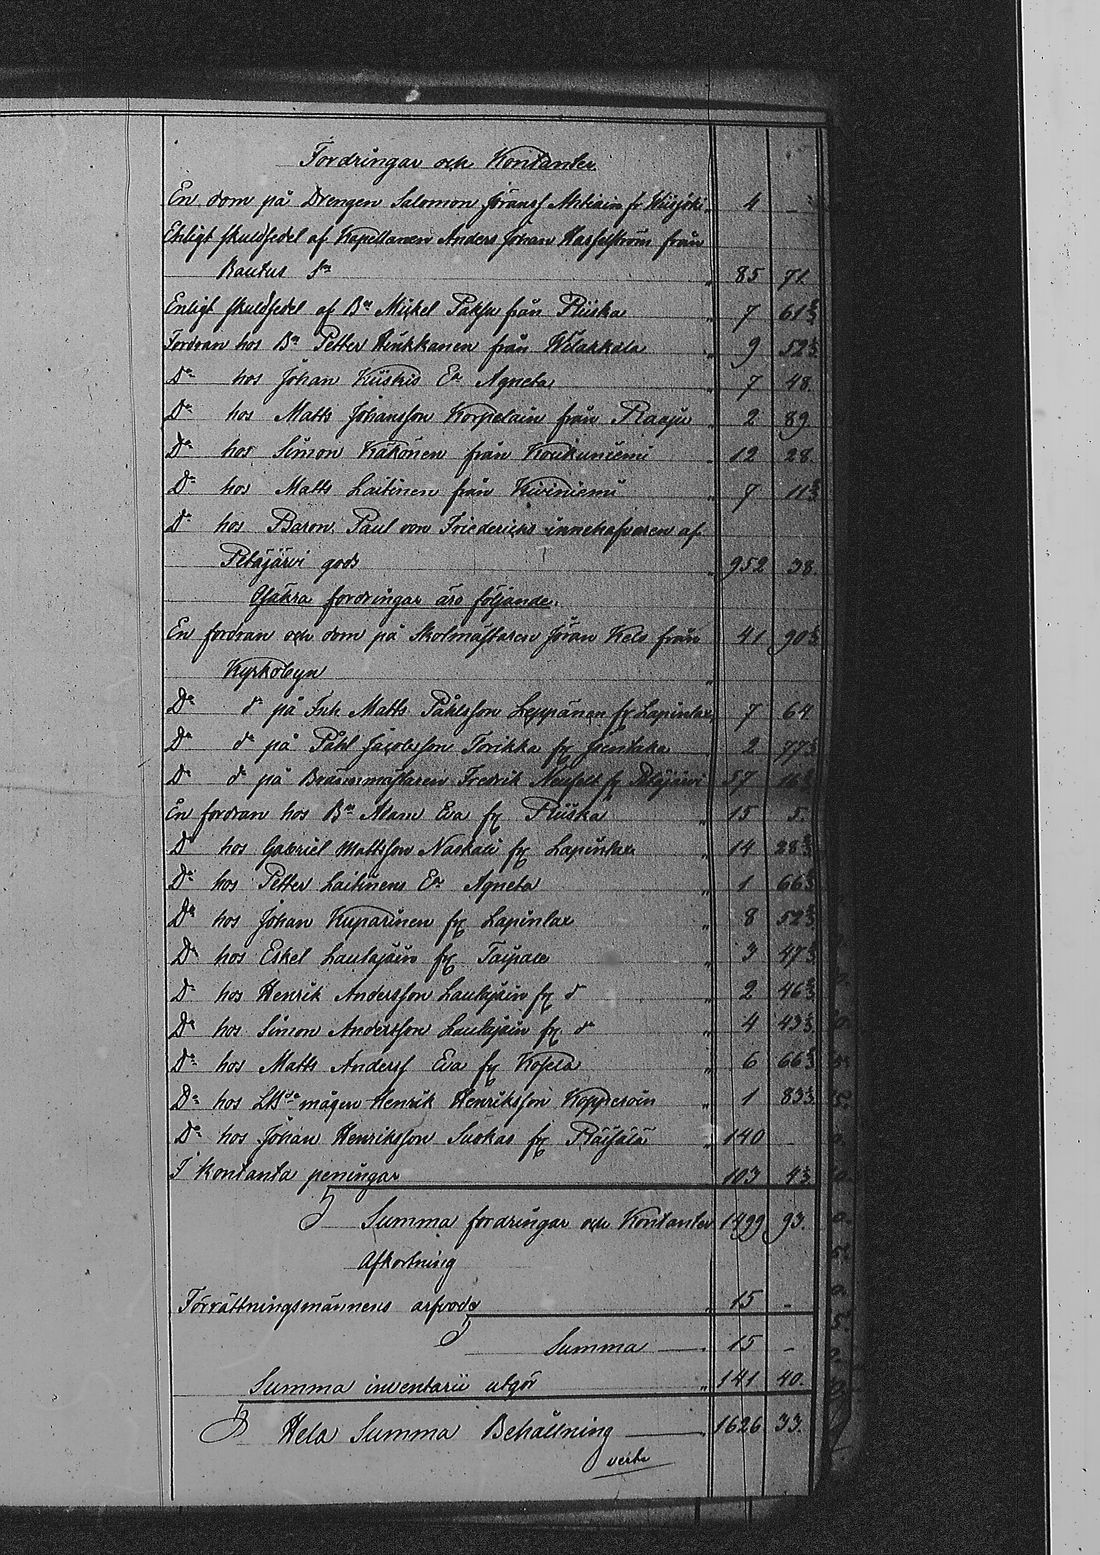 Fordringar och Kontanter.
En dom på Drengen Salomon Göransf fr 4 -
Enligt skuldsedel af Kapellanen Anders Johan Hasselström från
Rautus Sn 85 71
Enligt skuldsedel af Bn Mickel från Riiska 7 61
Fordran hos Bn Petter Hinkkanen från Wilakkala 9 52
Do hos Johan Kiiskis Ea Agneta 7 48.
Do hos Matts Johansson Korpelain från Raaju 2 89
Do hos Simon Käkönen från Koukuniemi 12 28.
Do hos Matts Laitinen från Kiviniemi 7 11
Do hos Baron Paul von Friedericks innehafvaren af
Petäjärvi gods 952 38.
Osäkra fordringar äro följande.
En fordran och dom på Skolmästaren Jöran från 41 90
Kyrkobyn
Do do på Inh Matts Påhlsson Leppänen fr Lapinlax 7 64
Do do på Påhl Jacobsson Torikka fr 2 77
Do do på Fredrik fr Petäjärvi 57 16
En fordran hos Bn Adam Eva fr Riiska 15 5.
Do hos Gabriel Mattsson Naskali fr Lapinlax 14 28
Do hos Petter Laitinens Ea Agneta 1 66
Do hos Johan Kuparinen fr Lapinlax 8 52
Do hos Eskel Laulajain fr Taipale 3 47
Do hos Henrik Andersson Laulajain fr do 2 46
Do hos Simon Andersson Laulajain fr do 4 43
Do hos Matts Andersf Eva fr Kosela 6 66
Do hos mågen Henrik Henriksson Kopperoin 1 83
Do hos Johan Henriksson Suokas fr Räisälä 140
I kontanta peningar 103 43
Summa fordringar och Kontanter 1499 93.
Afkortning
Förrättningsmännens arfvode 15 -
Summa 15 -
Summa inventarii utgör 141 40.
Hela Summa Behållning 1626 33.
verte